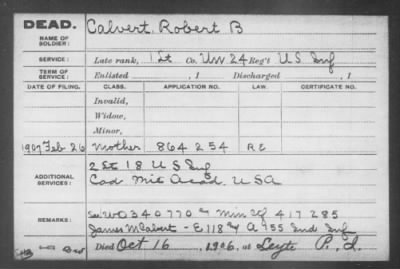 DEAD.
NAME OF SOLDIER:
Calvert, Robert B
SERVICE:
Late rank, 1 Lt Co. Un. 24 Reg't U S Inf
TERM OF SERVICE:
Enlisted , 1 Discharged , 1
DATE OF FILING. CLASS. APPLICATION NO. LAW. CERTIFICATE NO.
Invalid,
Widow,
Minor,
1907 Feb 26 Mother 864254
ADDITIONAL SERVICES:
2 Lt 18 U S Inf
Cad Mil Acad. U S A
REMARKS:
See WO 340770 Min of 417285
James M Calvert - E 118 & A 955 Ind Inf
Died Oct 16, 1906, at Leyte P. I.